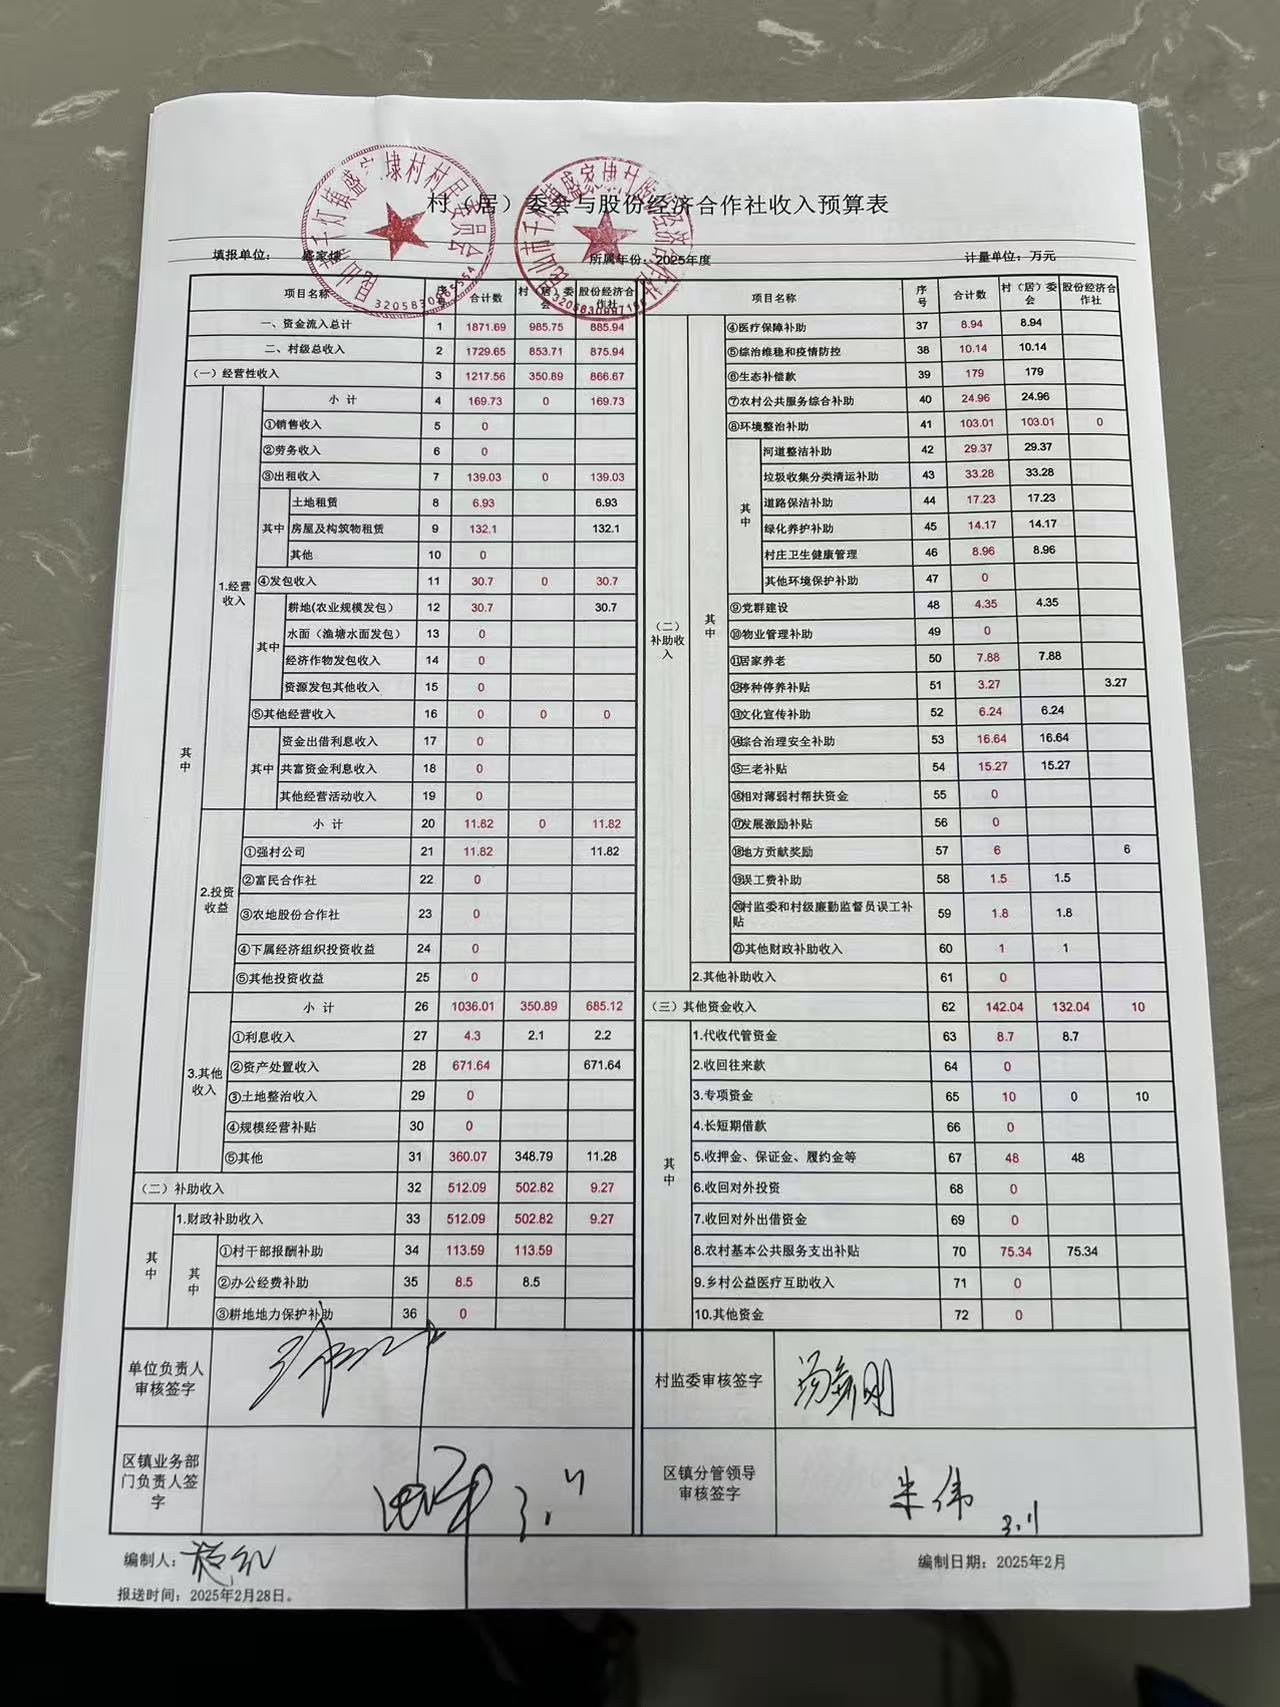 村（居）委会与股份经济合作社收入预算表
填报单位： 盛家埭 所属年份：2025年度 计量单位：万元
项目名称 序号 合计数 村（居）委会 股份经济合作社
一、资金流入总计 1 1871.69 985.75 885.94
二、村级总收入 2 1729.65 853.71 875.94
（一）经营性收入 3 1217.56 350.89 866.67
其中
1.经营收入
小 计 4 169.73 0 169.73
①销售收入 5 0
②劳务收入 6 0
③出租收入 7 139.03 0 139.03
其中
土地租赁 8 6.93 6.93
房屋及构筑物租赁 9 132.1 132.1
其他 10 0
④发包收入 11 30.7 0 30.7
其中
耕地(农业规模发包） 12 30.7 30.7
水面（渔塘水面发包） 13 0
经济作物发包收入 14 0
资源发包其他收入 15 0
⑤其他经营收入 16 0 0 0
其中
资金出借利息收入 17 0
共富资金利息收入 18 0
其他经营活动收入 19 0
2.投资收益
小 计 20 11.82 0 11.82
①强村公司 21 11.82 11.82
②富民合作社 22 0
③农地股份合作社 23 0
④下属经济组织投资收益 24 0
⑤其他投资收益 25 0
3.其他收入
小 计 26 1036.01 350.89 685.12
①利息收入 27 4.3 2.1 2.2
②资产处置收入 28 671.64 671.64
③土地整治收入 29 0
④规模经营补贴 30 0
⑤其他 31 360.07 348.79 11.28
（二）补助收入 32 512.09 502.82 9.27
其中
1.财政补助收入 33 512.09 502.82 9.27
其中
①村干部报酬补助 34 113.59 113.59
②办公经费补助 35 8.5 8.5
③耕地地力保护补助 36 0
项目名称 序号 合计数 村（居）委会 股份经济合作社
（二）补助收入
其中
④医疗保障补助 37 8.94 8.94
⑤综治维稳和疫情防控 38 10.14 10.14
⑥生态补偿款 39 179 179
⑦农村公共服务综合补助 40 24.96 24.96
⑧环境整治补助 41 103.01 103.01 0
其中
河道整洁补助 42 29.37 29.37
垃圾收集分类清运补助 43 33.28 33.28
道路保洁补助 44 17.23 17.23
绿化养护补助 45 14.17 14.17
村庄卫生健康管理 46 8.96 8.96
其他环境保护补助 47 0
⑨党群建设 48 4.35 4.35
⑩物业管理补助 49 0
⑪居家养老 50 7.88 7.88
⑫停种停养补贴 51 3.27 3.27
⑬文化宣传补助 52 6.24 6.24
⑭综合治理安全补助 53 16.64 16.64
⑮三老补贴 54 15.27 15.27
⑯相对薄弱村帮扶资金 55 0
⑰发展激励补贴 56 0
⑱地方贡献奖励 57 6 6
⑲误工费补助 58 1.5 1.5
⑳村监委和村级廉勤监督员误工补贴 59 1.8 1.8
㉑其他财政补助收入 60 1 1
2.其他补助收入 61 0
（三）其他资金收入 62 142.04 132.04 10
其中
1.代收代管资金 63 8.7 8.7
2.收回往来款 64 0
3.专项资金 65 10 0 10
4.长短期借款 66 0
5.收押金、保证金、履约金等 67 48 48
6.收回对外投资 68 0
7.收回对外出借资金 69 0
8.农村基本公共服务支出补贴 70 75.34 75.34
9.乡村公益医疗互助收入 71 0
10.其他资金 72 0
单位负责人审核签字
村监委审核签字
区镇业务部门负责人签字 3.11
区镇分管领导审核签字 朱伟 3.11
编制人： 编制日期：2025年2月
报送时间：2025年2月28日。